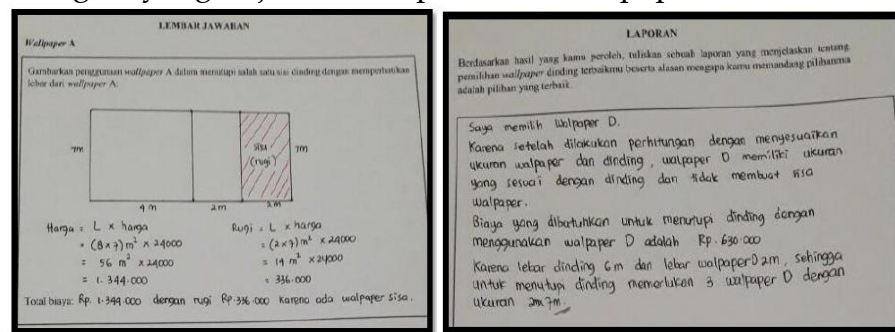 LEMBAR JAWABAN
Wallpaper A
Gambarkan penggunaan wallpaper A dalam menutupi salah satu sisi dinding dengan memperhatikan
lebar dari wallpaper A:
7m
sisa
(rugi)
7m
4 m
2m
2m
Harga = L x harga
= (8 x 7) m² x 24000
= 56 m² x 24000
= 1.344.000
Rugi = L x harga
= (2 x 7) m² x 24000
= 14 m² x 24000
= 336.000
Total biaya: Rp. 1.344.000 dengan rugi Rp. 336.000 karena ada walpaper sisa.
LAPORAN
Berdasarkan hasil yang kamu peroleh, tuliskan sebuah laporan yang menjelaskan tentang
pemilihan wallpaper dinding terbaikmu beserta alasan mengapa kamu memandang pilihanmu
adalah pilihan yang terbaik.
Saya memilih Walpaper D.
Karena setelah dilakukan perhitungan dengan menyesuaikan
ukuran walpaper dan dinding, walpaper D memiliki ukuran
yang sesuai dengan dinding dan tidak membuat sisa
walpaper.
Biaya yang dibutuhkan untuk menutupi dinding dengan
menggunakan walpaper D adalah Rp. 630.000
Karena lebar dinding 6m dan lebar walpaper D 2m, sehingga
untuk menutupi dinding memerlukan 3 walpaper D dengan
ukuran 2m 7m.